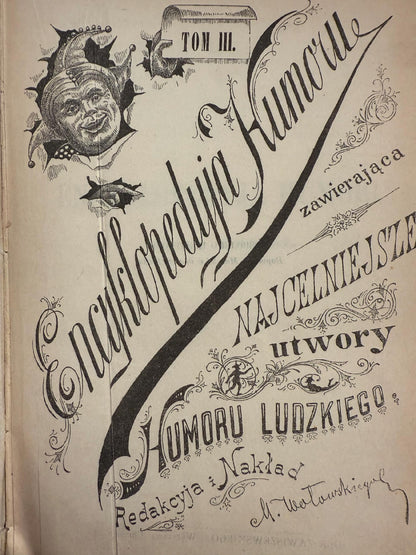 TOM III.
Encyklopedyja Humoru
zawierająca
NAJCELNIEJSZE
utwory
HUMORU LUDZKIEGO.
Redakcyja i Nakład
M. Wołowskiego